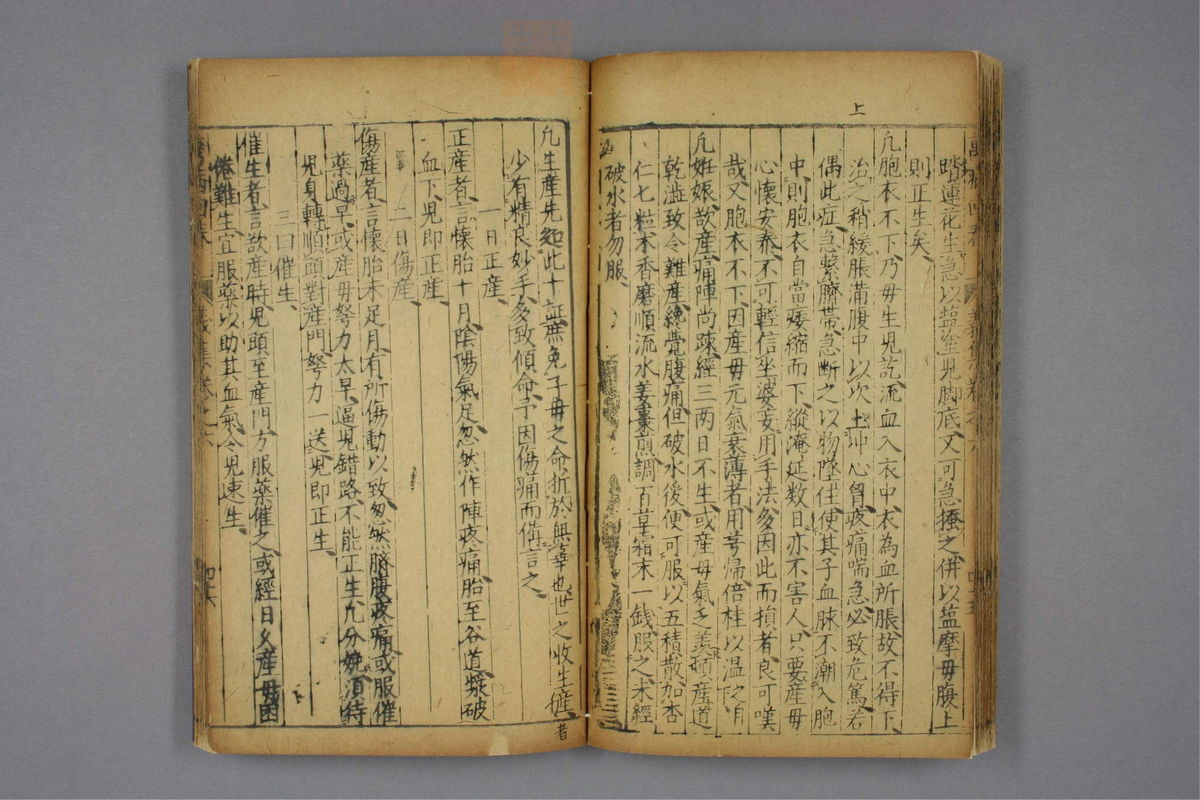 上
踏蓮花生急以塩塗児脚底又可急搔之併以塩摩母腹上
則正生矣
凢胞衣不下乃母生児訖流血入衣中衣為血所脹故不得下
治之稍緩脹滿腹中以次上冲心胷疼痛喘急必致危篤若
偶此症急繫臍帶急断之以物墜住使其子血脉不潮入胞
中則胞衣自當痿縮而下縱淹延数日亦不害人只要産母
心懷安泰不可輕信坐婆妄用手法多因此而損者良可嘆
哉又胞衣不下因産母元氣衰薄者用芎歸倍桂以温之
凢姙娠欲産痛陣尚踈經三兩日不生或産母氣乏羙頓産道
乾澁致令難産纔覺腹痛但破水後便可服以五積散加杏
仁七粒木香磨順流水姜棗煎調百草霜末一錢服之未經
破水者勿服
凢生産先知此十証無免子母之命折於無辜也世之收生者
少有精良妙手多致傾命予因傷痛而備言之
一曰正産
正産者言懷胎十月陰陽氣足忽然作陣疼痛胎至谷道漿破
血下児即正産
二曰傷産
傷産者言懷胎未足月有所傷動以致忽然臍腹疼痛或服催
藥過早或産母努力太早逼児錯路不能正生凢分娩須待
児身轉順頭對産門努力一送児即正生
三曰催生
催生者言欲産時児頭至産門方服藥催之或經日久産母困
倦難生宜服藥以助其血氣令児速生